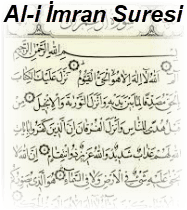 Al-i İmran Suresi
بِسْمِ اللّٰهِ الرَّحْمٰنِ الرَّحِيمِ
اَللّٰهُ لَا اِلٰهَ اِلَّا هُوَ الْحَىُّ الْقَيُّومُ نَزَّلَ عَلَيْكَ الْكِتَابَ
بِالْحَقِّ مُصَدِّقًا لِمَا بَيْنَ يَدَيْهِ وَاَنْزَلَ التَّوْرٰيةَ وَالْاِنْجِيلَ
قَبْلُ هُدًى لِلنَّاسِ وَاَنْزَلَ الْفُرْقَانَ اِنَّ الَّذِينَ كَفَرُوا بِاٰيَاتِ
اللّٰهِ لَهُمْ عَذَابٌ شَدِيدٌ وَاللّٰهُ عَزِيزٌ ذُو انْتِقَامٍ اِنَّ اللّٰهَ لَا
يَخْفٰى عَلَيْهِ شَىْءٌ فِى الْاَرْضِ وَلَا فِى السَّمَاءِ هُوَ الَّذِى